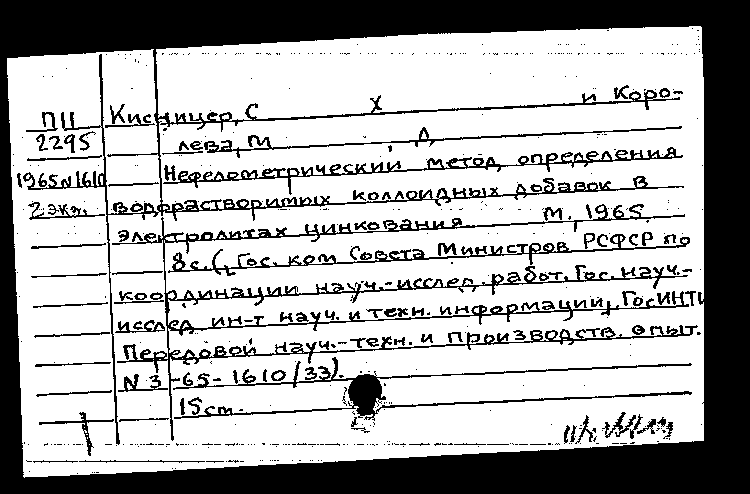 ПII Кисницер, С Х и Коро-
2295 лева, М , Л,
1965 N 1610 Нефелометрический метод определения
2 экз. водорастворимых коллоидных добавок в
электролитах цинкования М, 1965.
8 с. (Гос. ком Совета Министров РСФСР по
координации науч.-исслед. работ. Гос. науч.-
исслед ин-т науч. и техн. информации, ГосИНТИ
Передовой науч.-техн. и производств. опыт.
N 3 -65-1610/33).
15 cm.